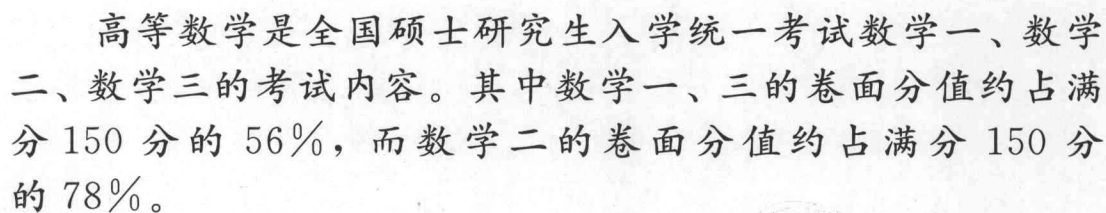 高等数学是全国硕士研究生入学统一考试数学一、数学
二、数学三的考试内容。其中数学一、三的卷面分值约占满
分 150 分的 56%，而数学二的卷面分值约占满分 150 分
的 78%。